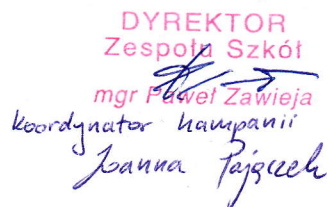 DYREKTOR
Zespołu Szkół
mgr Paweł Zawieja
Koordynator kampanii
Joanna Pajączek